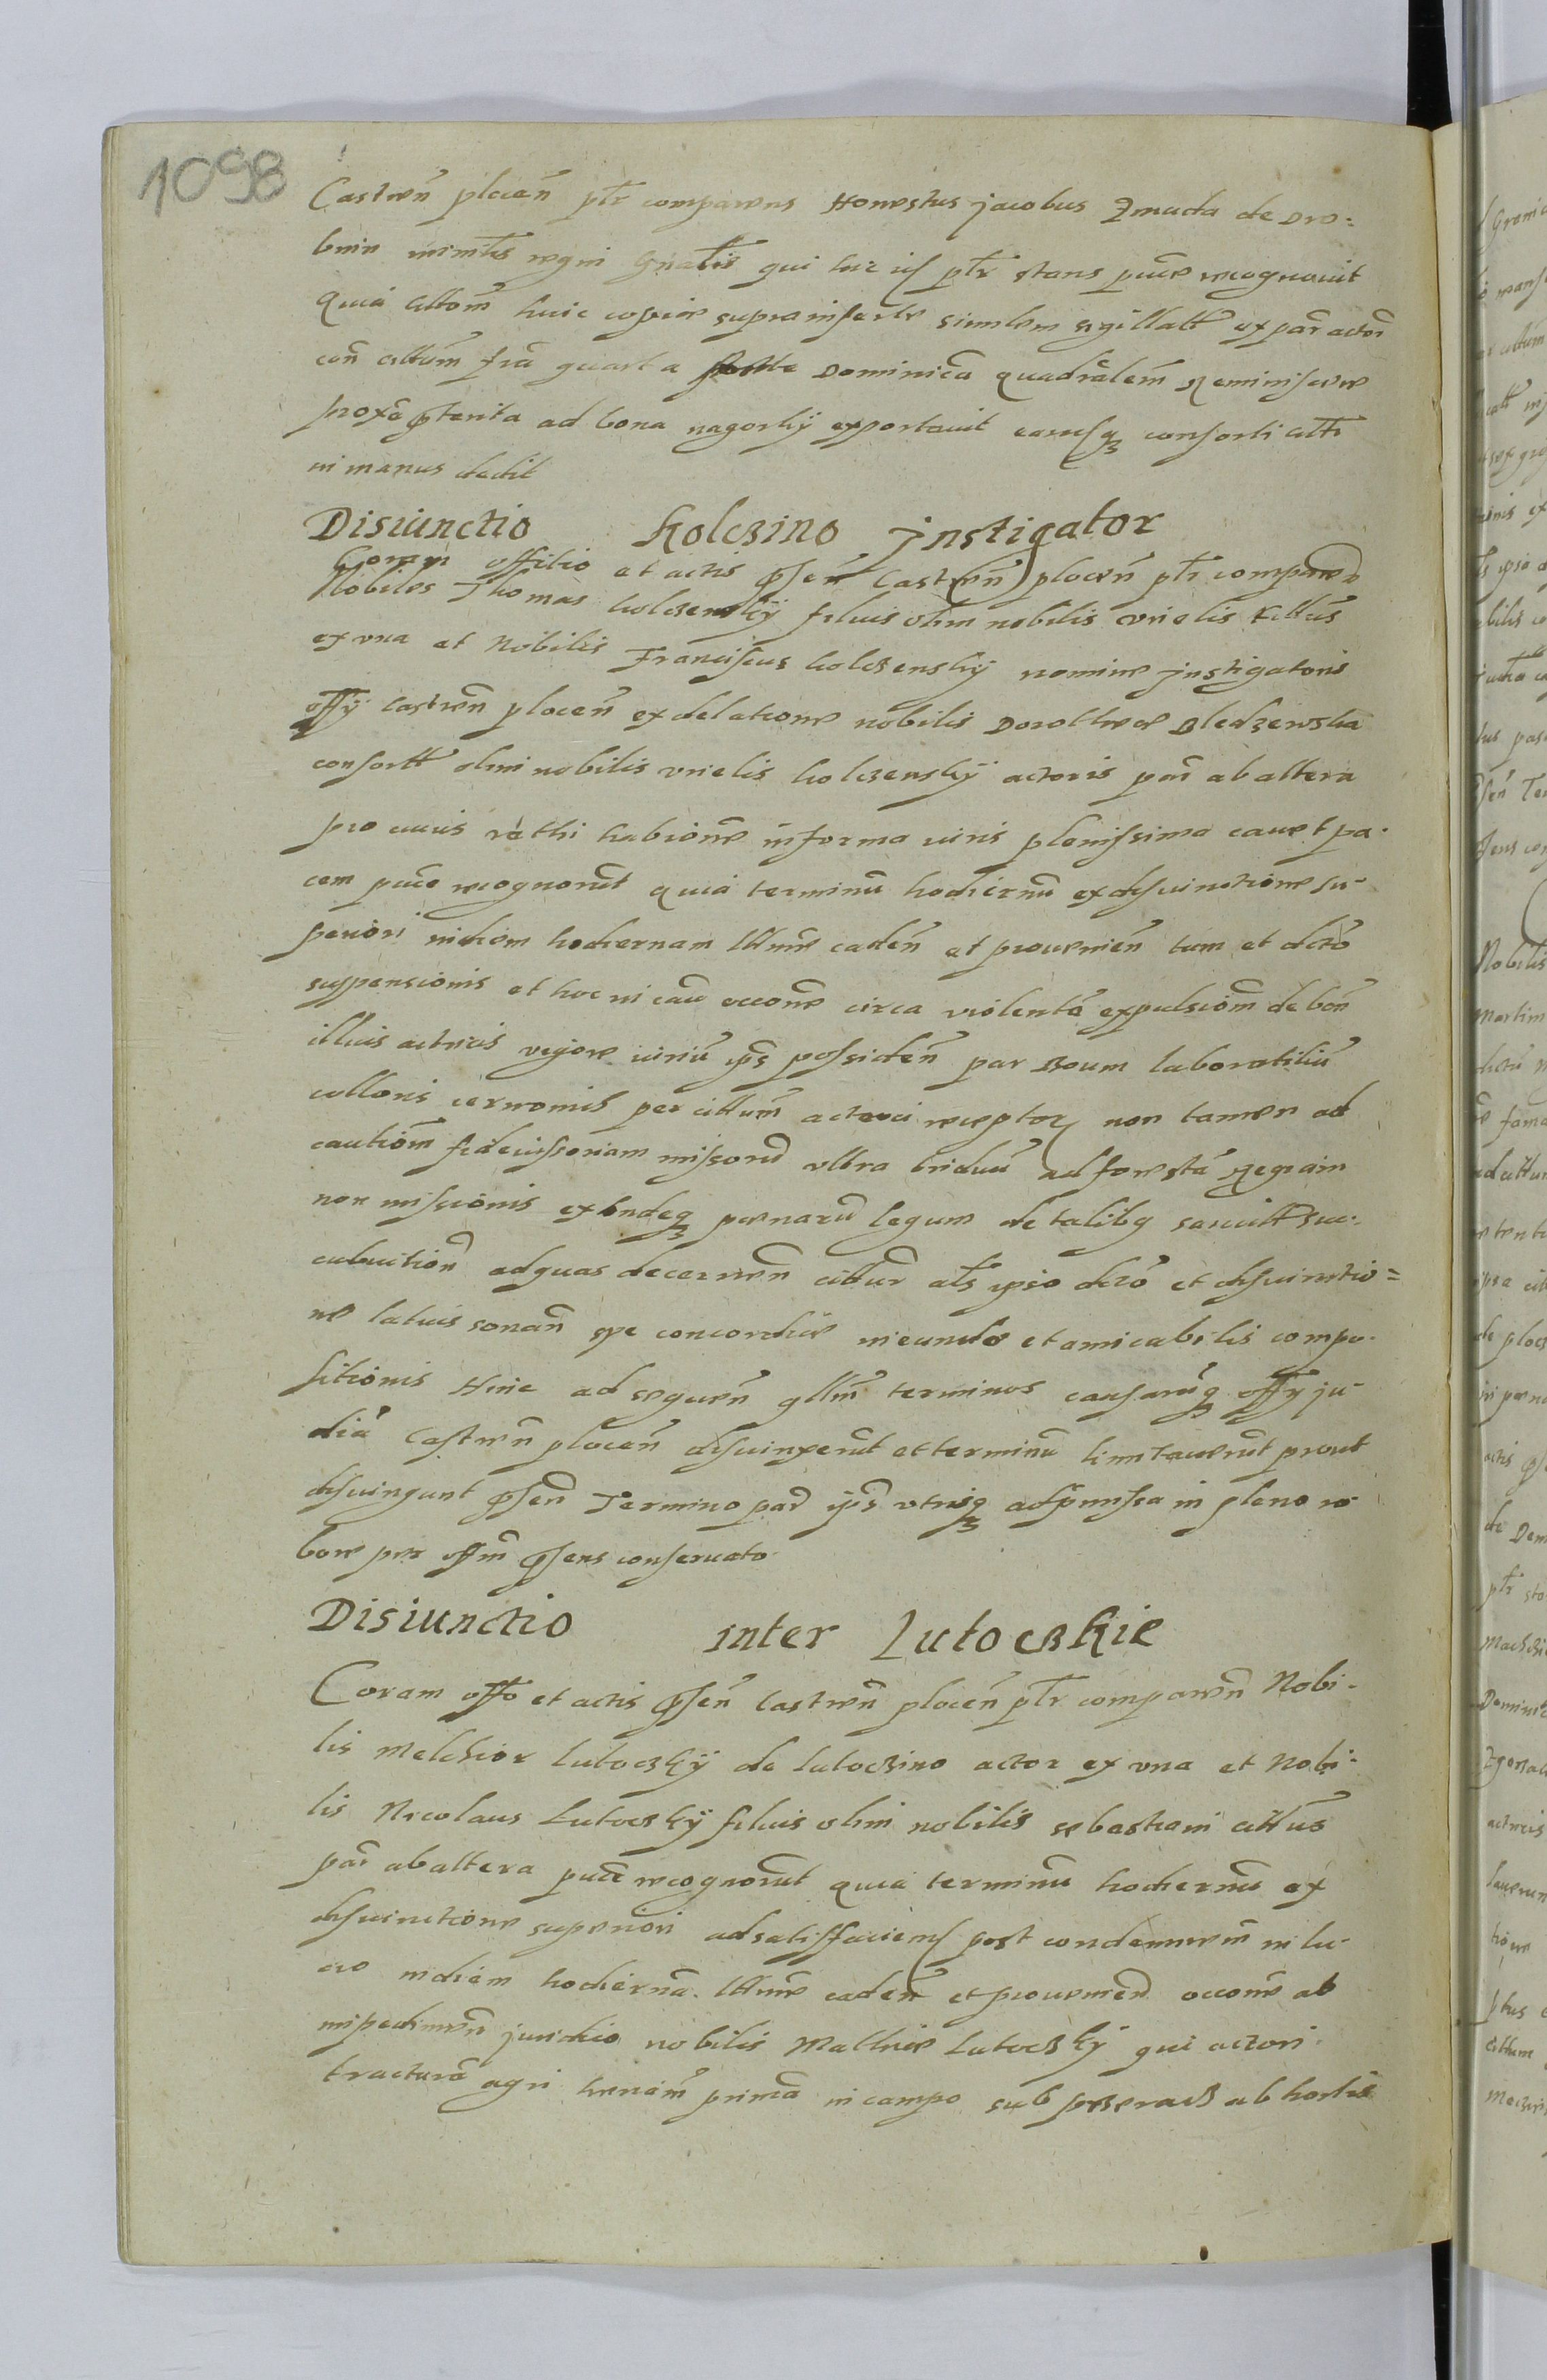 1098
Castren̄ plocen̄ ptr̄ comparens Honestus jacobus Zmuda de Dro:
bnin ministr̄is regni Gn̄alis qui hic ptr̄ stans puce recognovit
Quia citom̄ huic copiae suprainsertae similem sigillatt ex par̄ actor̄
con̄ cittum̄ fr̄a quarta Dominica quadralem̄ Reminiscere
proxa pterita ad bona nagorky exportavit eamsq consorti citti
in manus dedit
Disiunctio Kolczino jnstigator
Coram offitio et actis psen̄ Castren̄ plocen̄ ptr̄ comparen
Nobiles Thomas kolczensky filius olim nobilis vrielis Cittus
ex vna et Nobilis Franciscus kolczensky nomine jnstigatoris
offy castren̄ plocen̄ ex delatione nobilis Dorotheae Bledzewska
consortt olim nobilis vrielis kolczensky actoris par̄ ab altera
pro cuius rathi habione in forma iuris plenissima cavet pa-
cem puce recognorūt quia terminū hodiernū ex disiunctione su-
periori in diem hodiernam lttme caden̄ et provenien̄ tum et dcto
suspensionis et hoc in cau occone circa violenta expulsiom̄ de bon̄
illius actricis vigore iurium ips possiden̄ par Boum laboratiliū
colloris per cittum̄ actorei receptor non tamen ad
cautiom̄ fideiussoriam missorū vltra triduū ad foresta Regiam
non missionis exindeq poenarū legum de talibq sancitt suc-
cubuition̄ ad quas decernen̄ cittur̄ als ipso dcto et disiunctio=
ne latius sonan̄ spe concordiae ineundae et amicabilis compo-
sitionis Hinc ad sequen̄ qllm̄ terminos causarūq offy ju-
dia Castren̄ plocen̄ disiunxerūt et terminū limitaverūt prout
disiungunt psen̄ Termino par̄ ips vtrisq adpmissa in pleno ro-
bore per offm̄ psens conservato
Disiunctio inter Lutoczkie
Coram offo et actis psen̄ Castren̄ plocen̄ ptr̄ comparen̄ Nobi-
lis Melchior Lutoczky de lutoczino actor ex vna et Nobi-
lis Nicolaus Lutoczky filius olim nobilis sebastiani cittus
par̄ ab altera puce recognorūt quia terminū hodiernū ex
disiunctione superiori ad satisfacien post condemnem̄ in lu-
cro in diem hodiernā lttme caden̄ et provenien̄ occone ab
impedimen̄ juridico nobilis Mathiae Lutoczky qui actori
tracturā agri prima in campo sub ab hortis